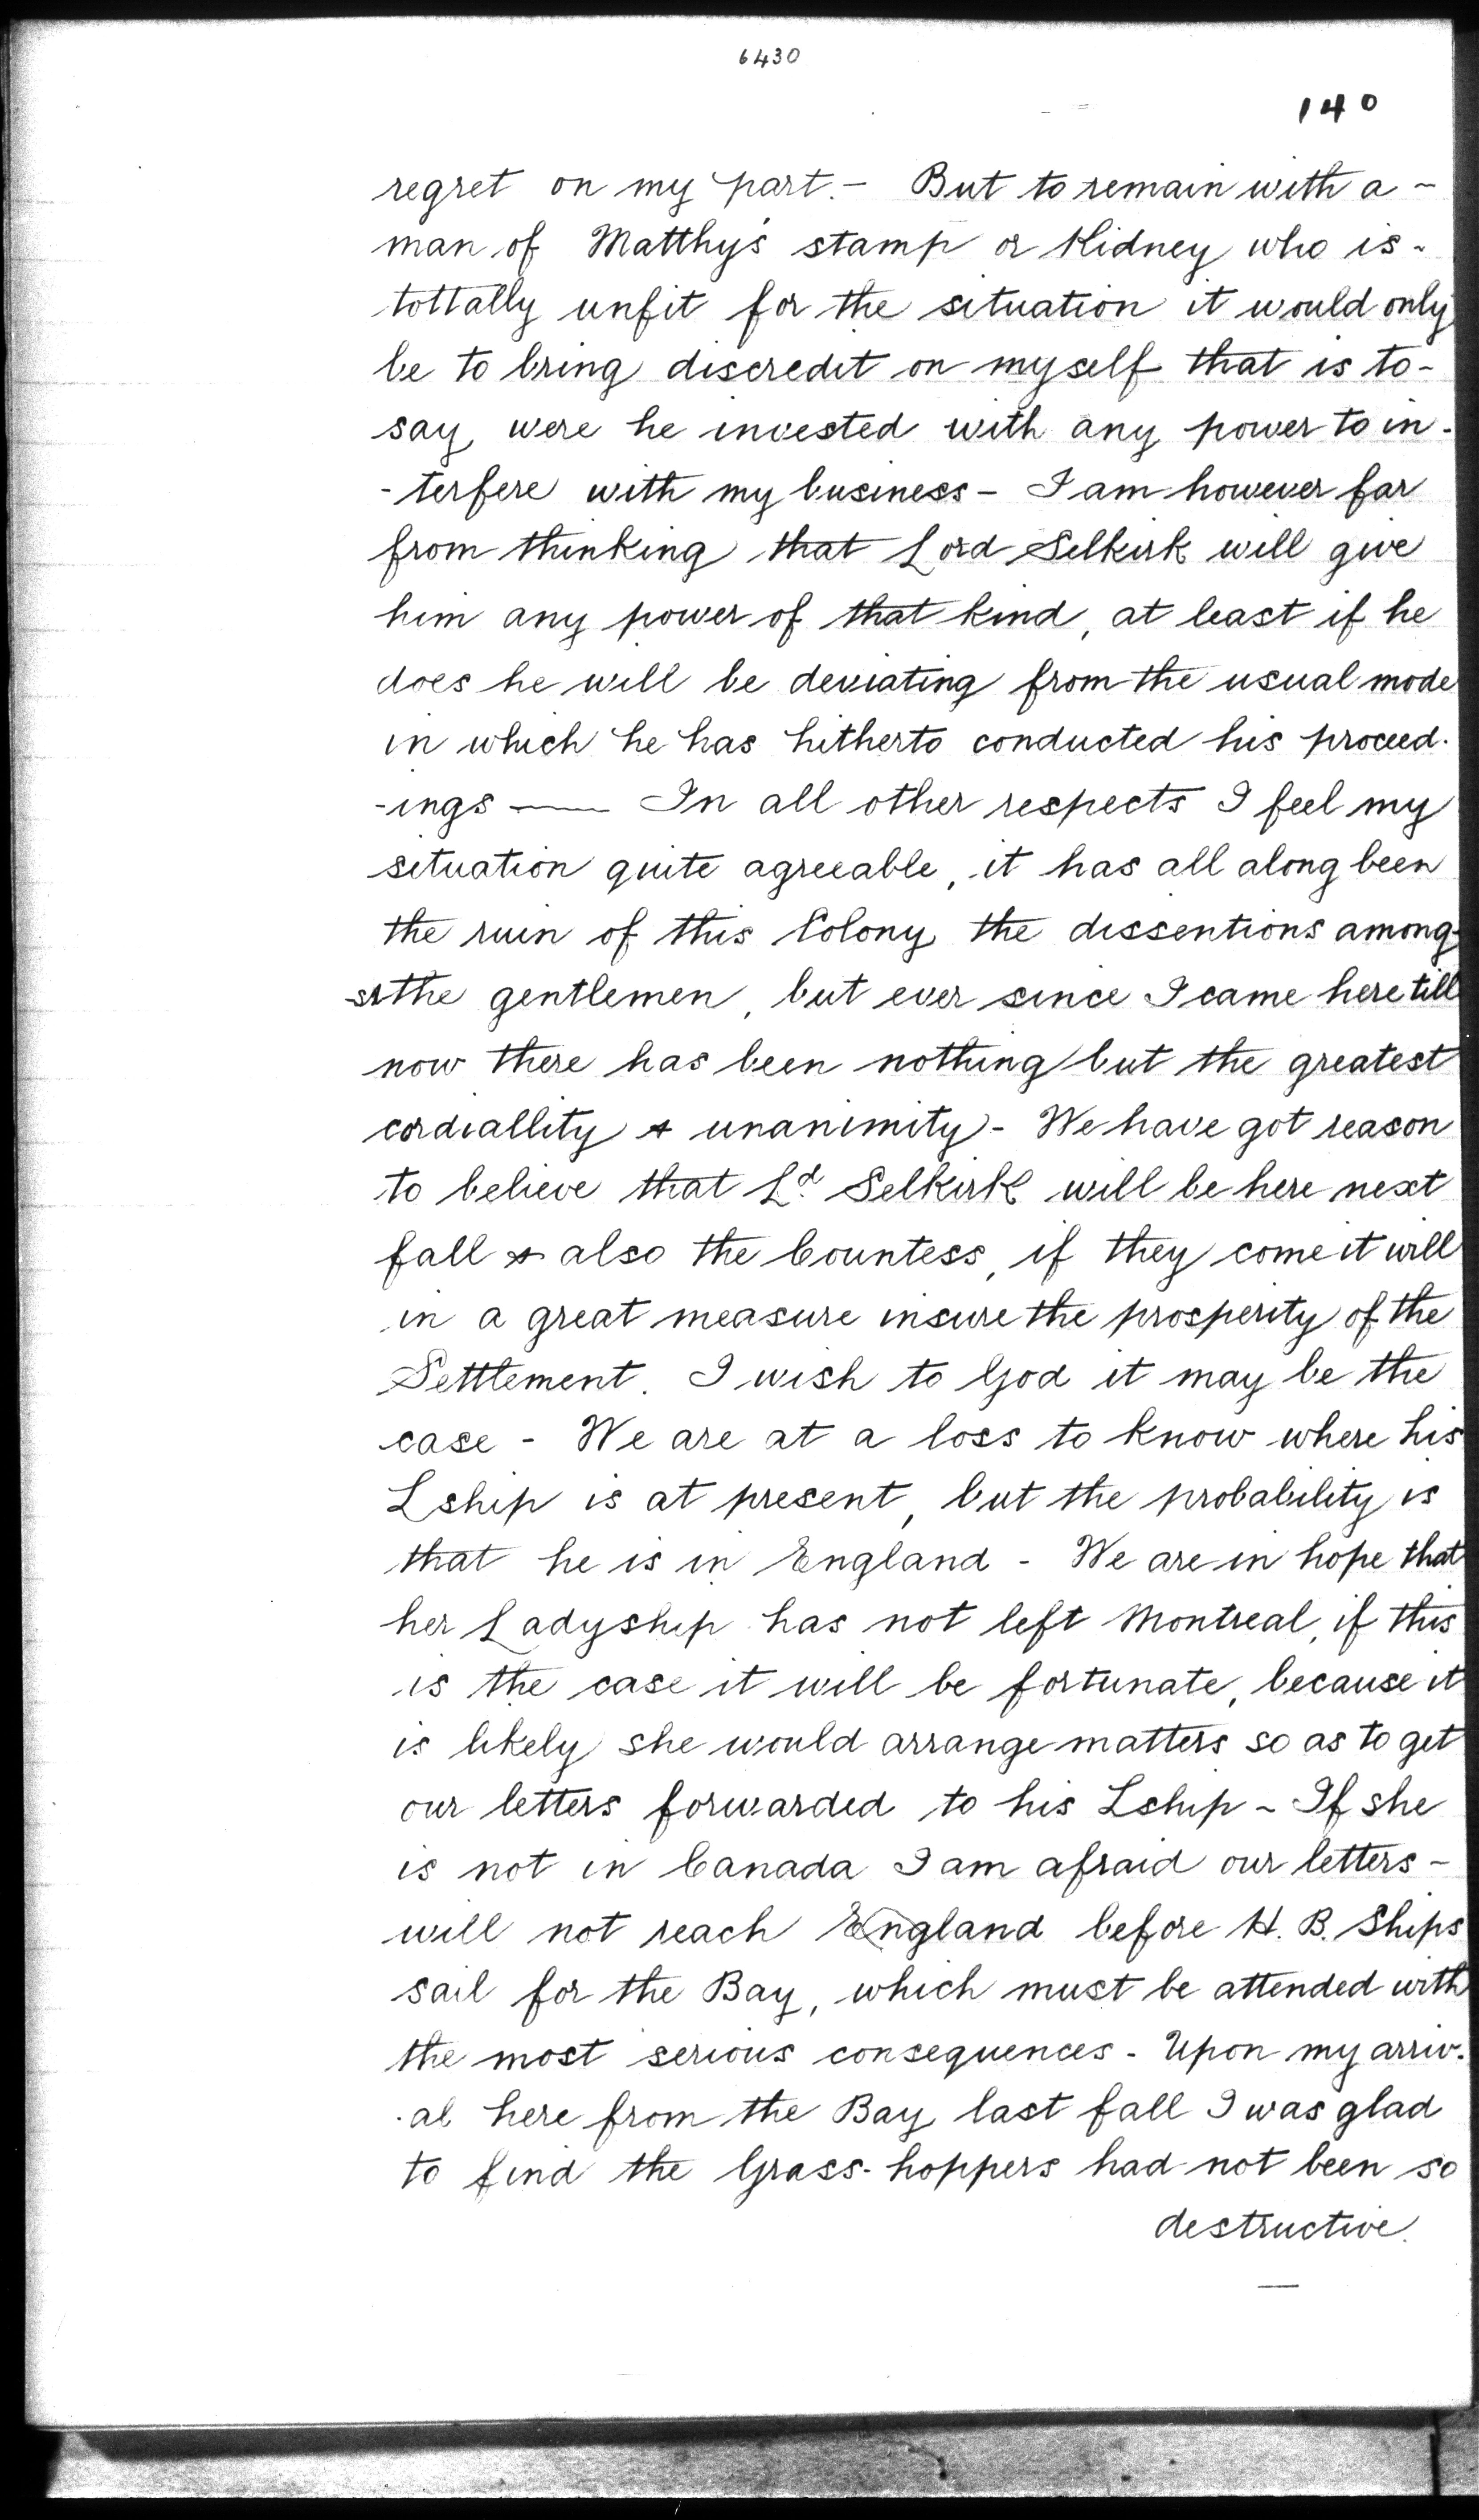 6430
140
regret on my part. - But to remain with a -
man of Matthy's stamp or Kidney who is -
tottally unfit for the situation it would only
be to bring discredit on myself that is to -
say, were he invested with any power to in -
- terfere with my business - I am however far
from thinking that Lord Selkirk will give
him any power of that kind, at least if he
does he will be deviating from the usual mode
in which he has hitherto conducted his proceed -
- ings —— In all other respects I feel my
situation quite agreeable, it has all along been
the ruin of this Colony the dissentions among -
- st the gentlemen, but ever since I came here till
now there has been nothing but the greatest
cordiallity & unanimity - We have got reason
to believe that Ld. Selkirk will be here next
fall & also the Countess, if they come it will
in a great measure insure the prosperity of the
Settlement. I wish to God it may be the
case - We are at a loss to know where his
Lship is at present, but the probability is
that he is in England - We are in hope that
her Ladyship has not left Montreal, if this
is the case it will be fortunate, because it
is likely she would arrange matters so as to get
our letters forwarded to his Lship - If she
is not in Canada I am afraid our letters -
will not reach England before H. B. Ships
sail for the Bay, which must be attended with
the most serious consequences - Upon my arriv -
- al here from the Bay last fall I was glad
to find the Grass-hoppers had not been so
destructive.